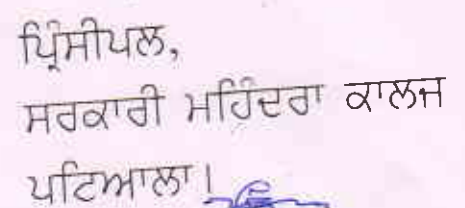 ਪ੍ਰਿੰਸੀਪਲ,
ਸਰਕਾਰੀ ਮਹਿੰਦਰਾ ਕਾਲਜ
ਪਟਿਆਲਾ।